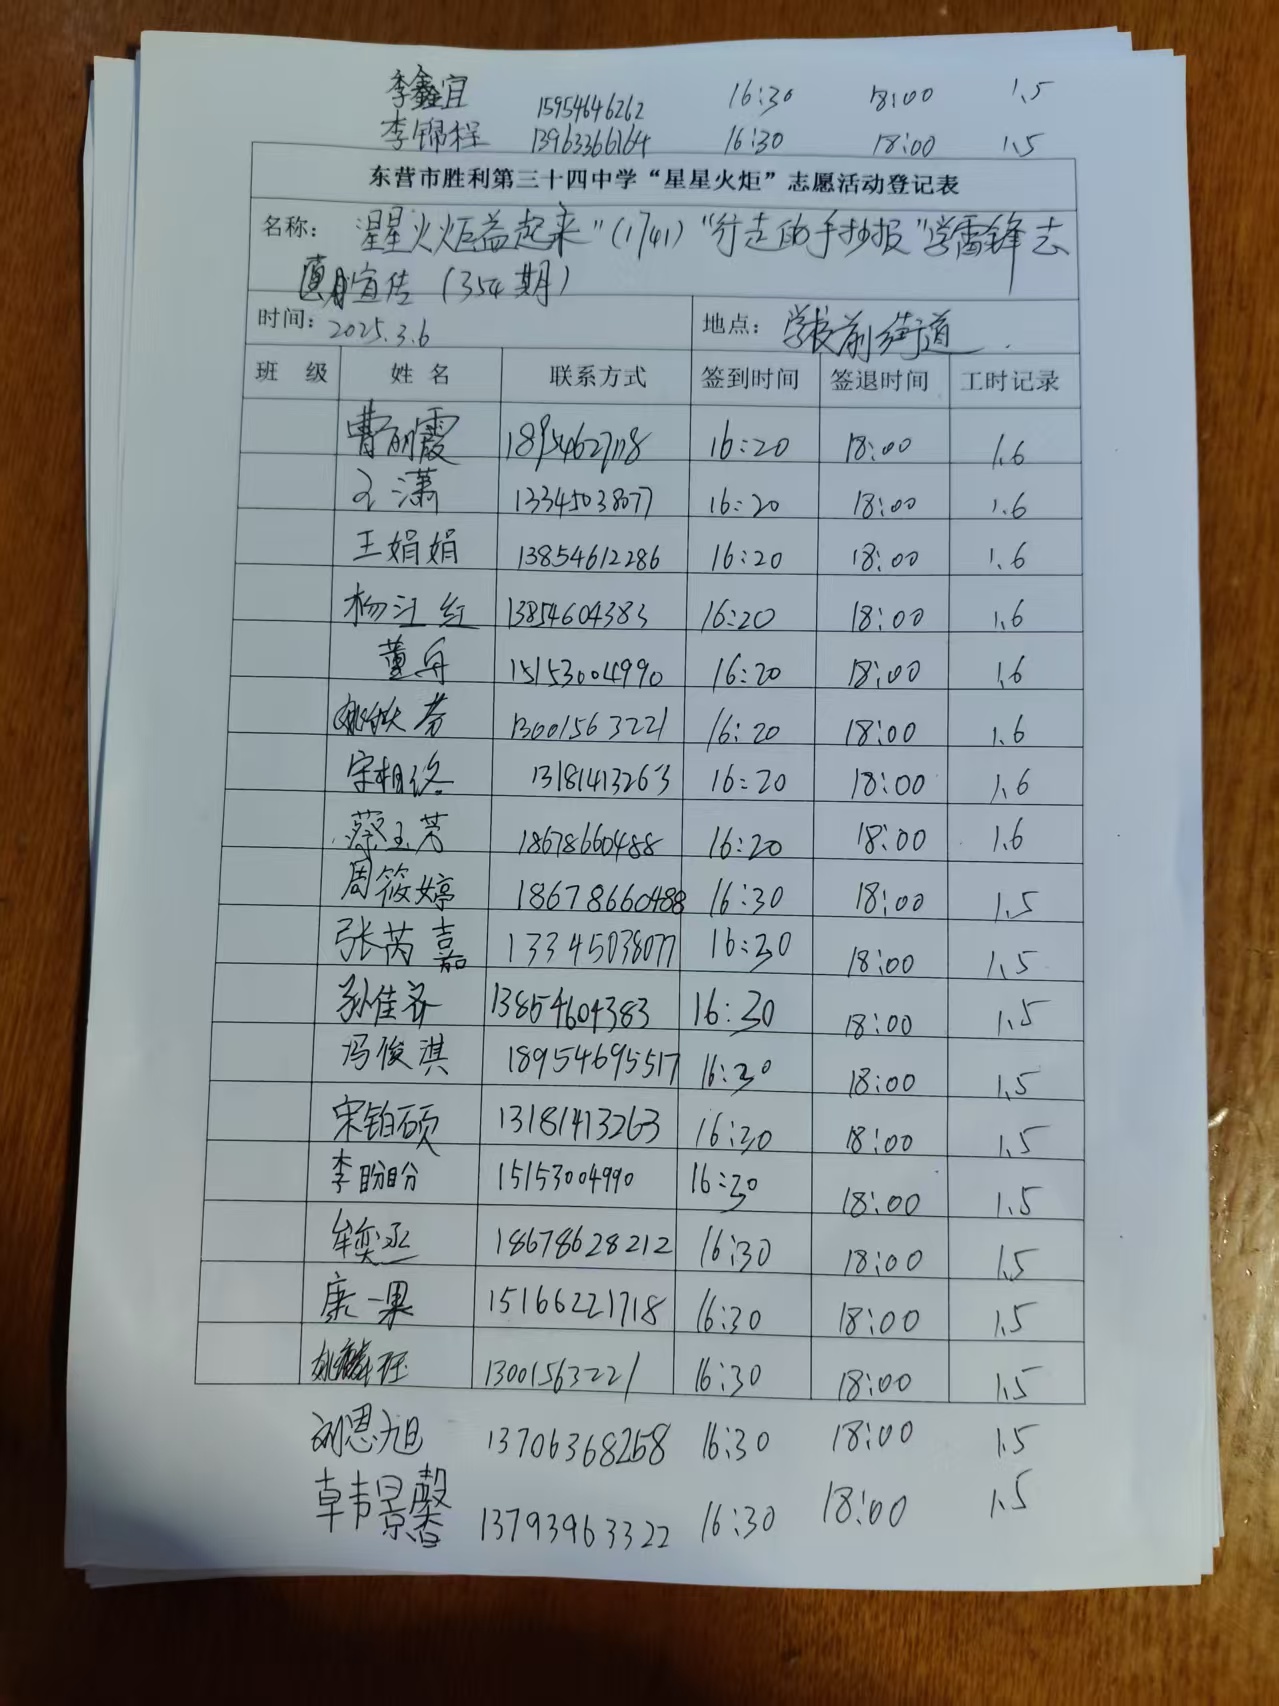 李鑫宜 15954646262 16:30 18:00 1.5
李锦程 13963366164 16:30 18:00 1.5
东营市胜利第三十四中学“星星火炬”志愿活动登记表
名称: 星星火炬益起来”(1741)“行走的手抄报”学雷锋志
愿宣传(354期)
时间: 2025.3.6 地点: 学校前街道.
班 级 姓 名 联系方式 签到时间 签退时间 工时记录
曹丽霞 16:20 18:00 1.6
王潇 13345038077 16:20 18:00 1.6
王娟娟 13854612286 16:20 18:00 1.6
杨江红 13854604383 16:20 18:00 1.6
董舟 15153004990 16:20 18:00 1.6
姚 芳 13001563221 16:20 18:00 1.6
宋相 13181413263 16:20 18:00 1.6
蔡玉芳 18678660488 16:20 18:00 1.6
周筱婷 18678660488 16:30 18:00 1.5
张芮嘉 13345038077 16:30 18:00 1.5
孙佳齐 13854604383 16:30 18:00 1.5
冯俊淇 18954695517 16:30 18:00 1.5
宋铂硕 13181413263 16:30 18:00 1.5
李盼盼 15153004990 16:30 18:00 1.5
牟奕丞 18678628212 16:30 18:00 1.5
康一果 15166221718 16:30 18:00 1.5
姚麟 13001563221 16:30 18:00 1.5
刘思旭 13706368268 16:30 18:00 1.5
韩景馨 13793963322 16:30 18:00 1.5